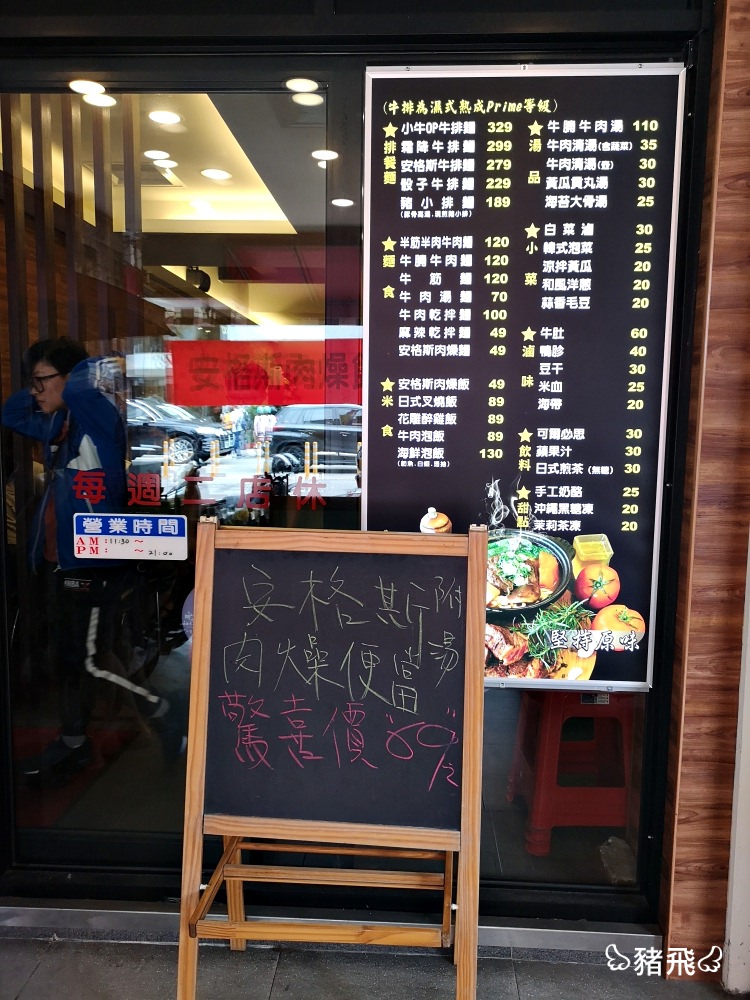 (牛排為濕式熟成Prime等級)
排餐麵
小牛OP牛排麵 329
霜降牛排麵 299
安格斯牛排麵 279
骰子牛排麵 229
豬小排麵 189
麵食
半筋半肉牛肉麵 120
牛腩牛肉麵 120
牛筋麵 120
牛肉湯麵 70
牛肉乾拌麵 100
麻辣乾拌麵 49
安格斯肉燥麵 49
米食
安格斯肉燥飯 49
日式叉燒飯 89
花雕醉雞飯 89
牛肉泡飯 89
海鮮泡飯 130
湯品
牛腩牛肉湯 110
牛肉清湯(含蔬菜) 35
牛肉清湯(壺) 30
黃瓜貢丸湯 30
海苔大骨湯 25
小菜
白菜滷 30
韓式泡菜 25
涼拌黃瓜 20
和風洋蔥 20
蒜香毛豆 20
滷味
牛肚 60
鴨胗 40
豆干 30
米血 25
海帶 20
飲料
可爾必思 30
蘋果汁 30
日式煎茶(無糖) 30
甜點
手工奶酪 25
沖繩黑糖凍 20
茉莉茶凍 20
堅持原味
安格斯肉燥飯
每週二店休
營業時間
AM:11:30～
PM: ～21:00
安格斯附湯
肉燥便當
驚喜價"89"元
豬飛